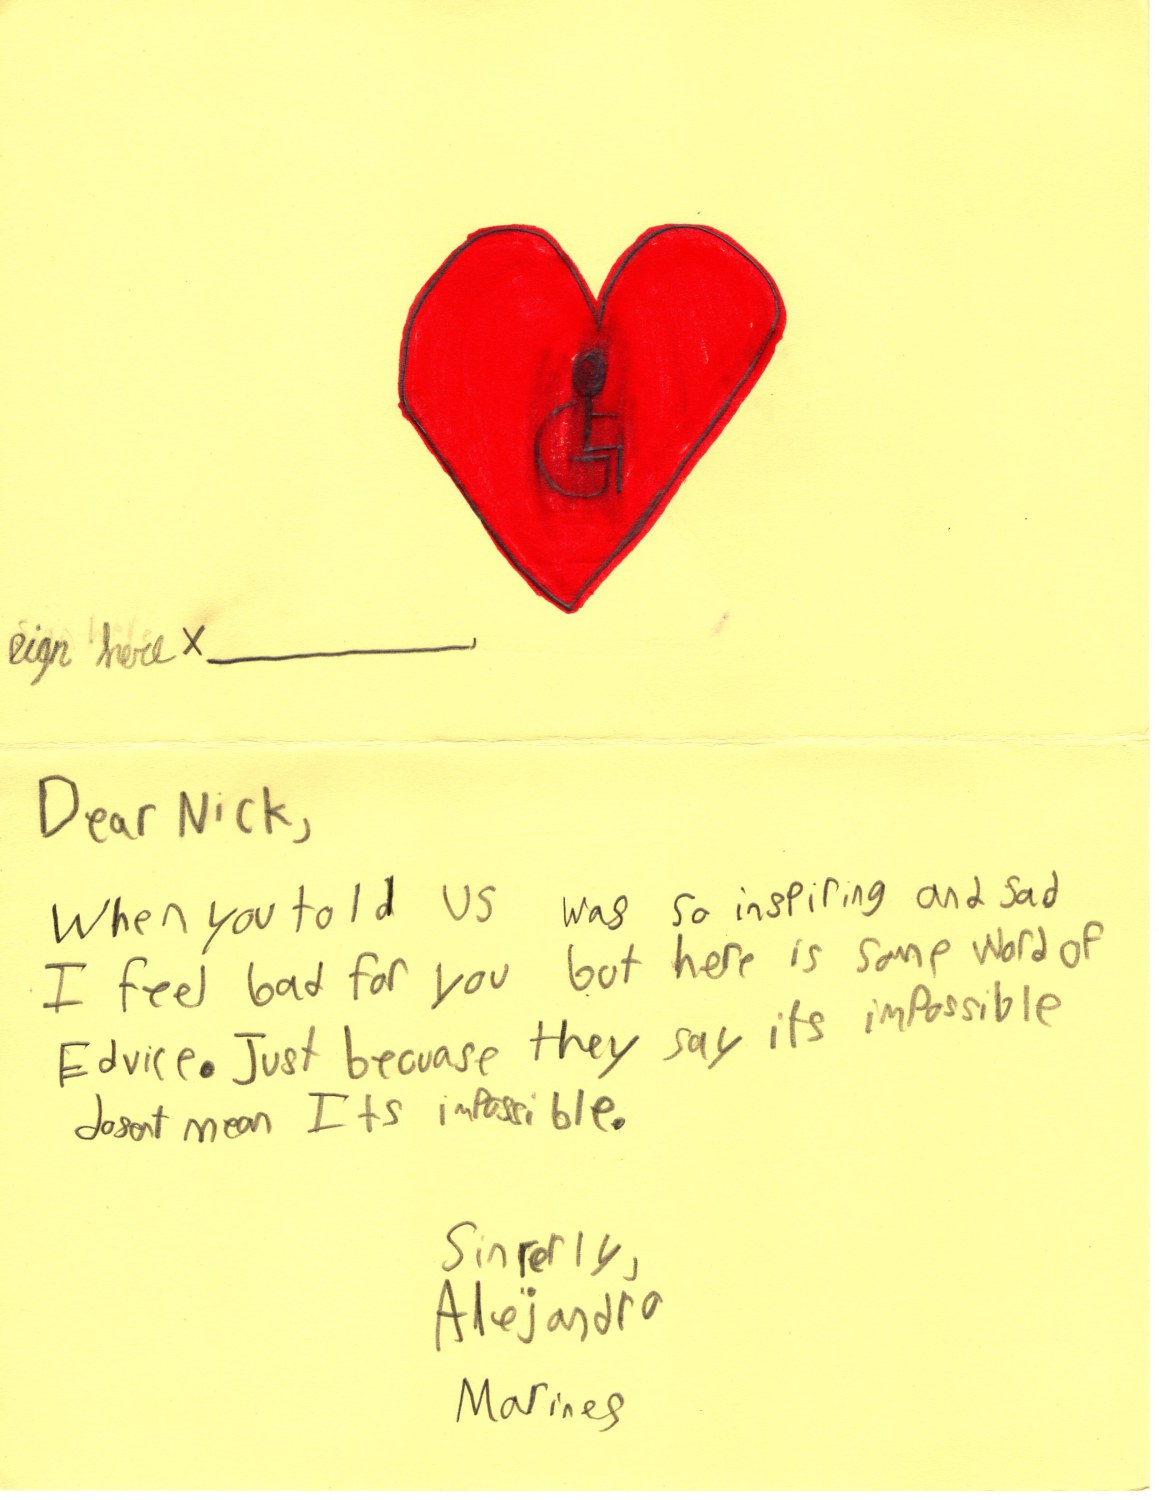 sign here X
Dear Nick,
When you told us was so inspiring and sad
I feel bad for you but here is some word of
Edvice. Just becuase they say its impossible
dosent mean Its impossible.
Sincerly,
Alejandra
Marines